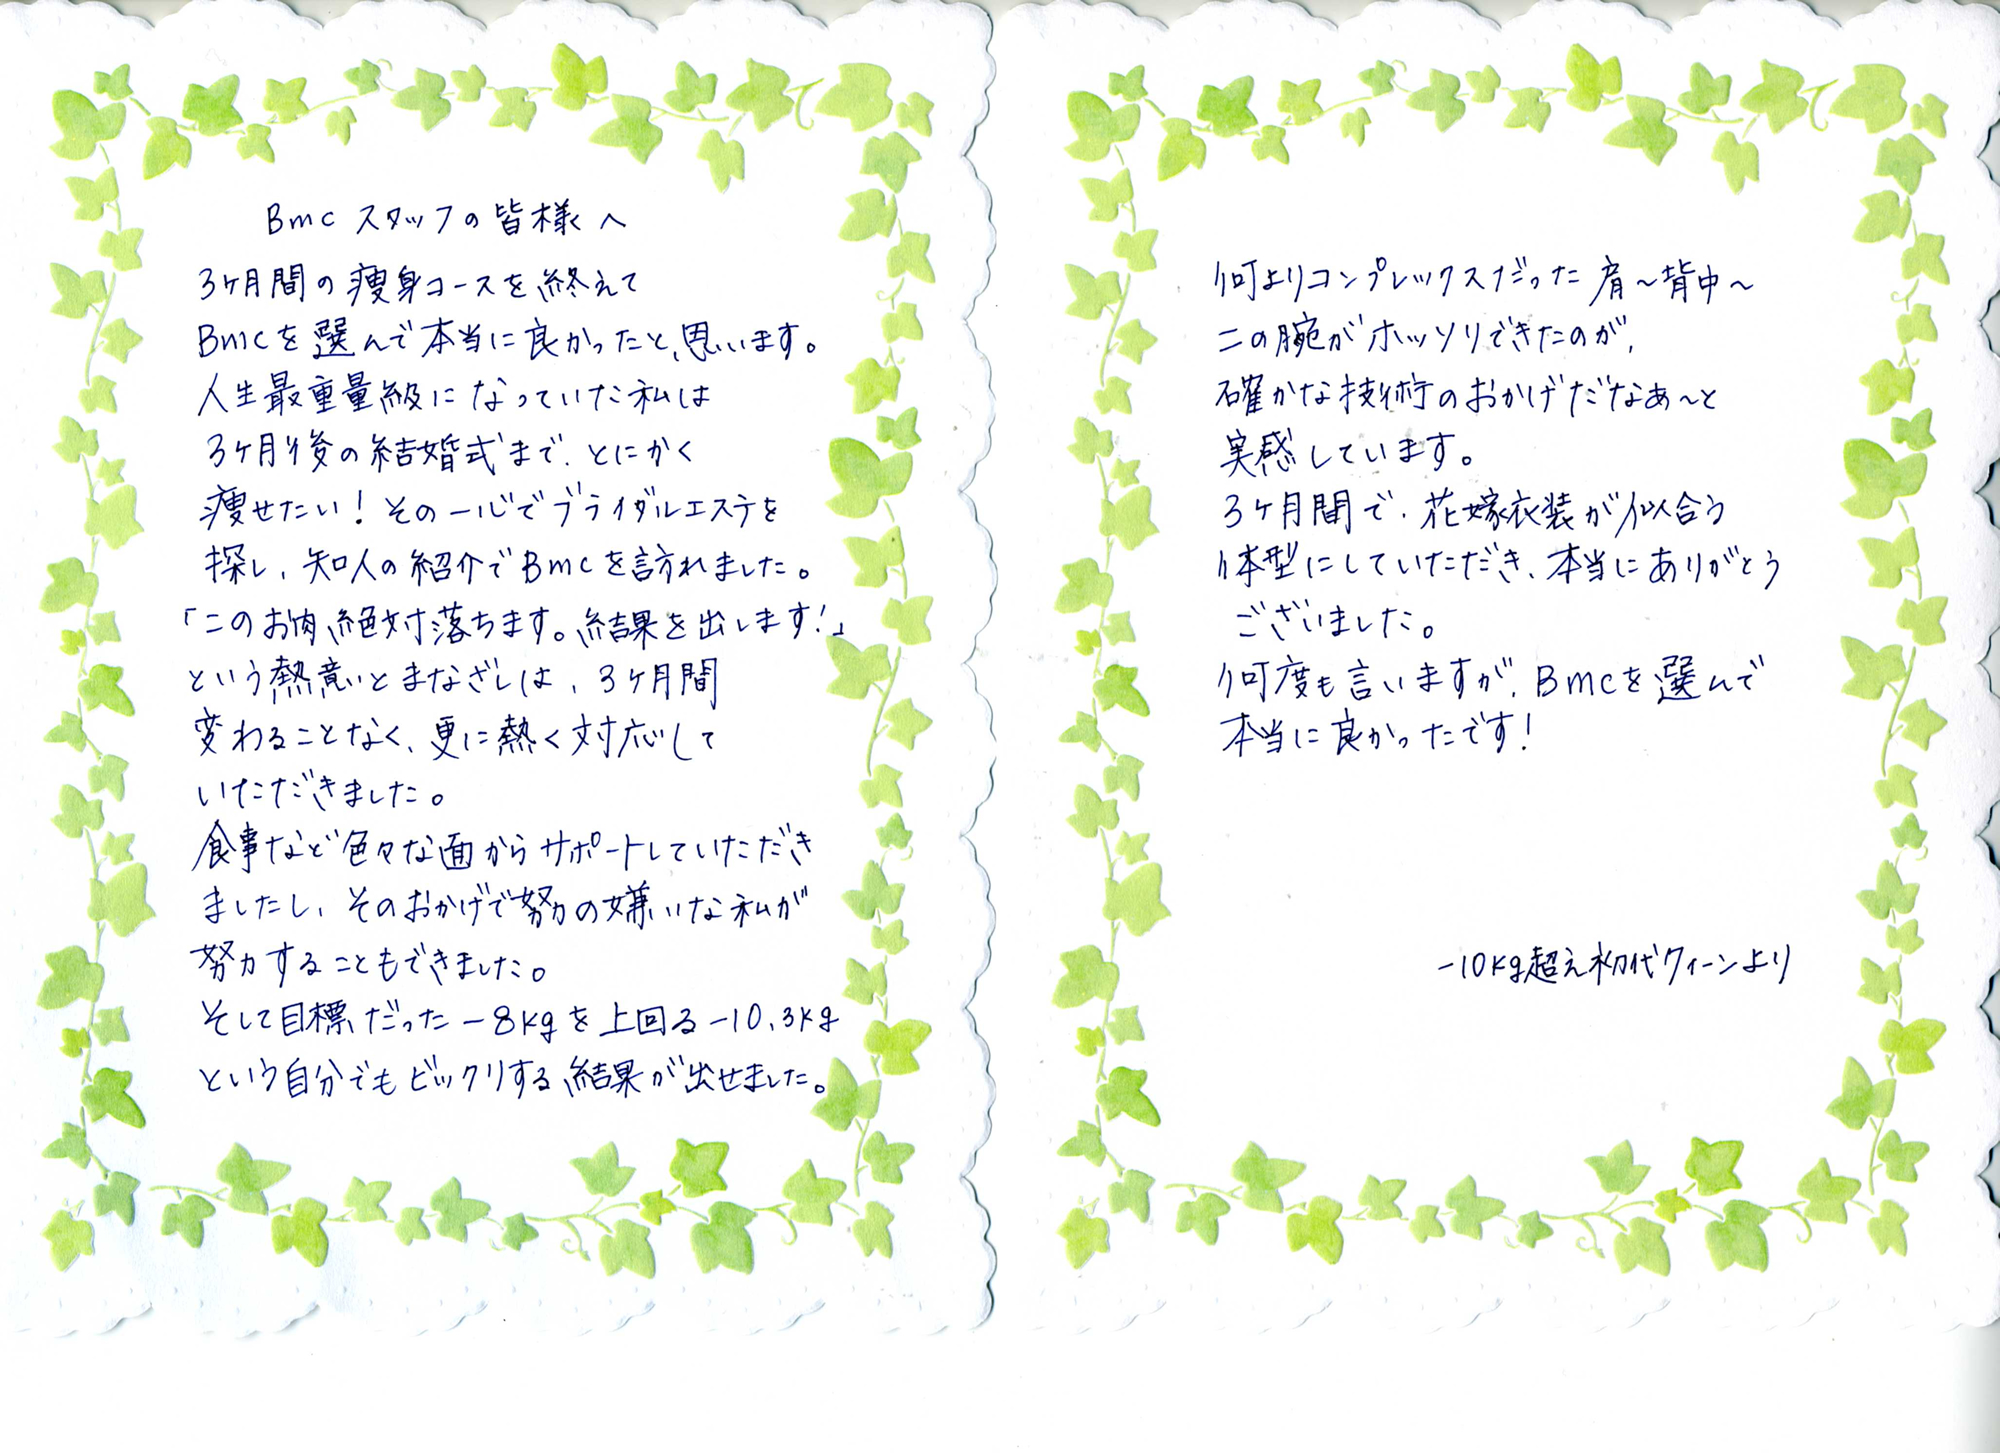 Bmc スタッフの皆様へ
3ヶ月間の痩身コースを終えて
Bmcを選んで本当に良かったと、思います。
人生最重量級になっていた私は
3ヶ月後の結婚式まで、とにかく
痩せたい！その一心でブライダルエステを
探し、知人の紹介でBmcを訪れました。
「このお肉、絶対落ちます。結果を出します！」
という熱意いとまなざしは、3ヶ月間
変わることなく、更に熱く対応して
いただきました。
食事など色々な面からサポートしていただき
ましたし、そのおかげで努力の嫌いな私が
努力することもできました。
そして目標だった－8kgを上回る－10.3kg
という自分でもビックリする結果が出せました。
何よりコンプレックスだった肩～背中～
二の腕がホッソリできたのが、
確かな技術のおかげだなぁ～と
実感しています。
3ヶ月間で、花嫁衣装が似合う
体型にしていただき、本当にありがとう
ございました。
何度も言いますが、Bmcを選んで
本当に良かったです！
－10kg超え初代クィーンより